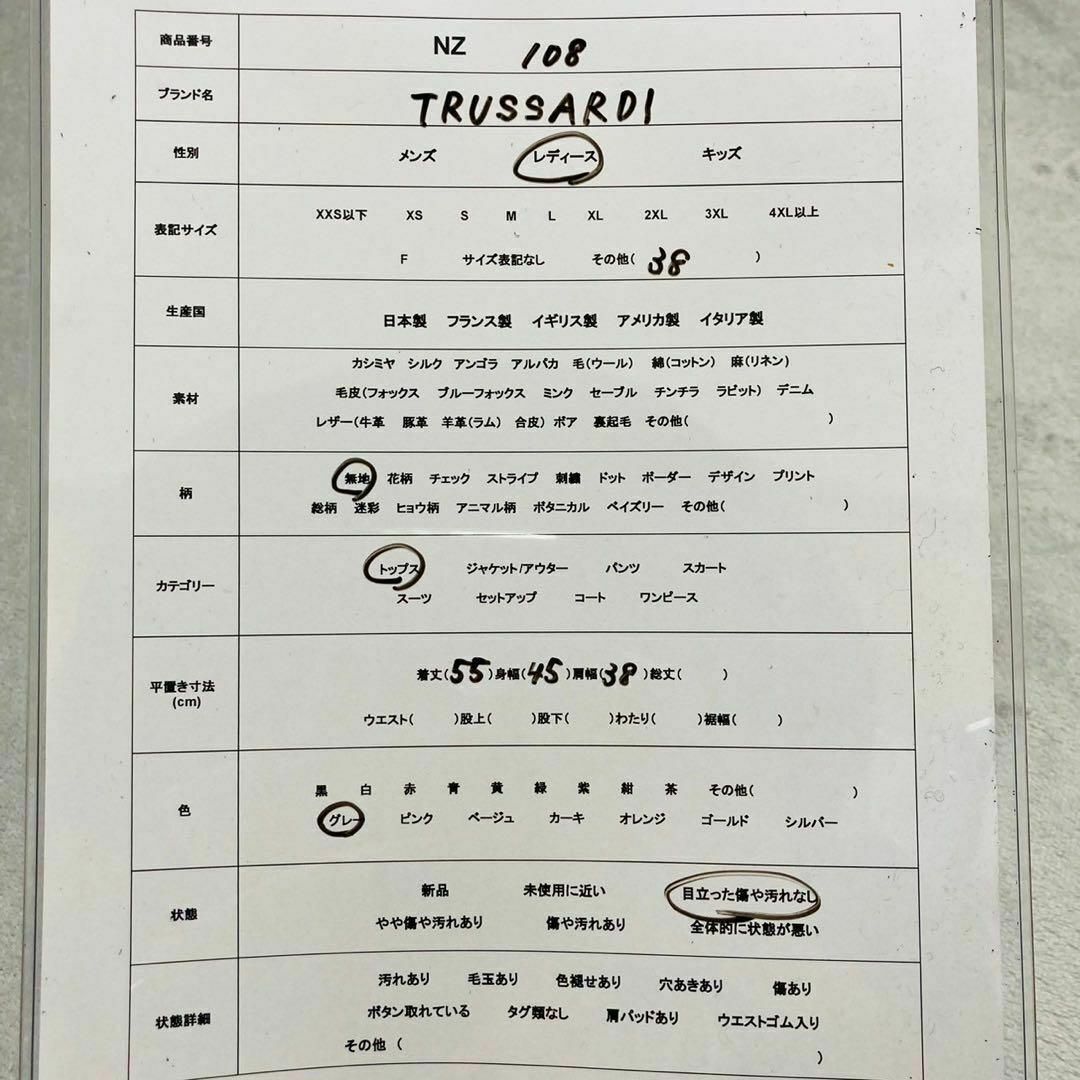 商品番号 NZ 108
ブランド名 TRUSSARDI
性別 メンズ レディース キッズ
表記サイズ XXS以下 XS S M L XL 2XL 3XL 4XL以上
F サイズ表記なし その他( 38 )
生産国 日本製 フランス製 イギリス製 アメリカ製 イタリア製
素材 カシミヤ シルク アンゴラ アルパカ 毛(ウール) 綿(コットン) 麻(リネン)
毛皮(フォックス ブルーフォックス ミンク セーブル チンチラ ラビット) デニム
レザー(牛革 豚革 羊革(ラム) 合皮) ボア 裏起毛 その他( )
柄 無地 花柄 チェック ストライプ 刺繍 ドット ボーダー デザイン プリント
総柄 迷彩 ヒョウ柄 アニマル柄 ボタニカル ペイズリー その他( )
カテゴリー トップス ジャケット/アウター パンツ スカート
スーツ セットアップ コート ワンピース
平置き寸法 (cm) 着丈(55)身幅(45)肩幅(38)総丈( )
ウエスト( )股上( )股下( )わたり( )裾幅( )
色 黒 白 赤 青 黄 緑 紫 紺 茶 その他( )
グレー ピンク ベージュ カーキ オレンジ ゴールド シルバー
状態 新品 未使用に近い 目立った傷や汚れなし
やや傷や汚れあり 傷や汚れあり 全体的に状態が悪い
状態詳細 汚れあり 毛玉あり 色褪せあり 穴あきあり 傷あり
ボタン取れている タグ類なし 肩パッドあり ウエストゴム入り
その他 ( )